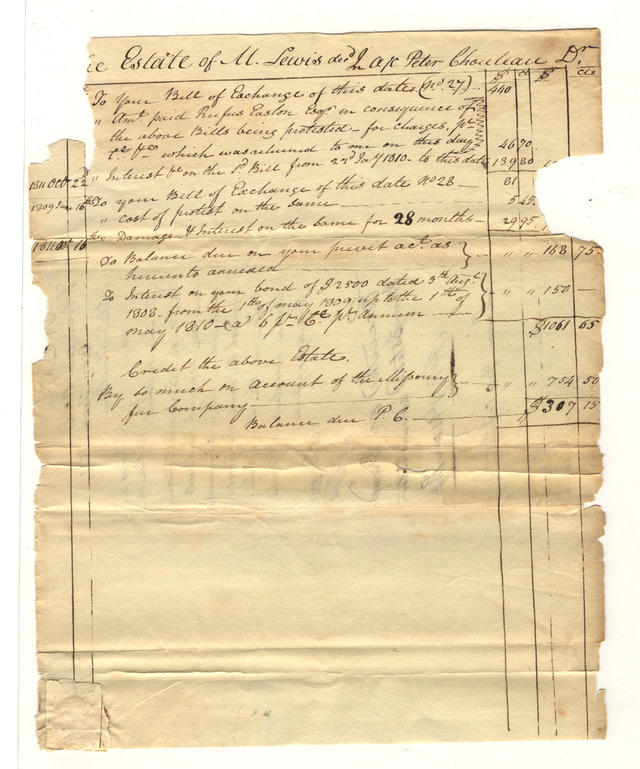 Estate of M. Lewis decd In a/c Peter Chouteau Dr.
$ ct $ cts
To Your Bill of Exchange of this date (No. 27) 440
" Amt. paid Rufus Easton Esqr. in consequence of
the above Bills being protested - for charges, pr.
which was returned to me on this day 46 70
1811 Oct 22d " Interest on the sd Bill from 22d Jany 1810 - to this date 139 80
1809 16th To your Bill of Exchange of this date No 28 81
" cost of protest on the same 5 45
1811 16th Damage & Interest on the same for 28 months 29 95
To Balance due on your privet act. as } " " 168 75
hereunto annexed
To Interest on your bond of $2500 dated 5th Augt. } " " 150 —
1808 - from the 1th of may 1809 up to the 1th of
may 1810 - a 6 pr. Ct. pr. Annum
$1061 65
Credit the above Estate.
By so much on account of the Missoury } " " 754 50
fur Company
Balance due P. C. $307 15